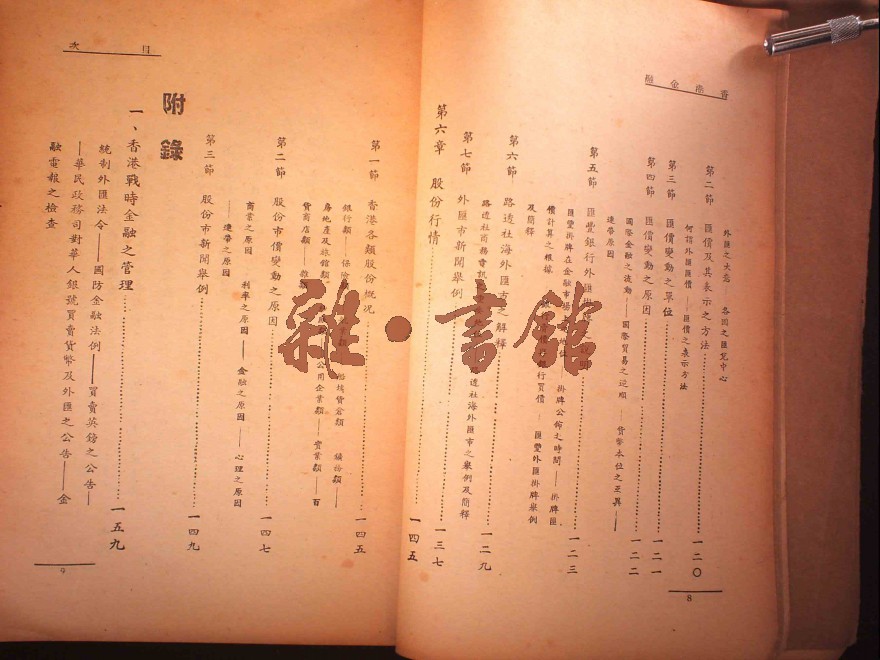 香港金融
外匯之大意　各國之匯兌中心
第二節　匯價及其表示之方法……一二〇
何謂外匯匯價——匯價之表示方法
第三節　匯價變動之單位……一二一
第四節　匯價變動之原因……一二二
國際金融之流動——國際貿易之逆順——貨幣本位之互異——
連帶原因
第五節　匯豐銀行外匯掛牌……一二三
匯豐掛牌在金融市場——掛牌公佈之時間——掛牌匯
價計算之根據——銀行買價——匯豐外匯掛牌舉例
及簡釋
第六節　路透社海外匯市之解釋……一二九
路透社商務電訊——路透社海外匯市之舉例及簡釋
第七節　外匯市新聞舉例……一三七
第六章　股份行情……一四五
8
目次
第一節　香港各類股份概況……一四五
銀行類——保險類——船塢貨倉類——礦務類——
房地產及旅館類——公用企業類——實業類——百
貨商店類——雜類
第二節　股份市價變動之原因……一四七
商業之原因——利率之原因——金融之原因——心理之原因
——連帶之原因
第三節　股份市新聞舉例……一四九
附錄
一、香港戰時金融之管理……一五九
統制外匯法令——國防金融法例——買賣英鎊之公告—
—華民政務司對華人銀號買賣貨幣及外匯之公告——金
融電報之檢查
9
雜·書館